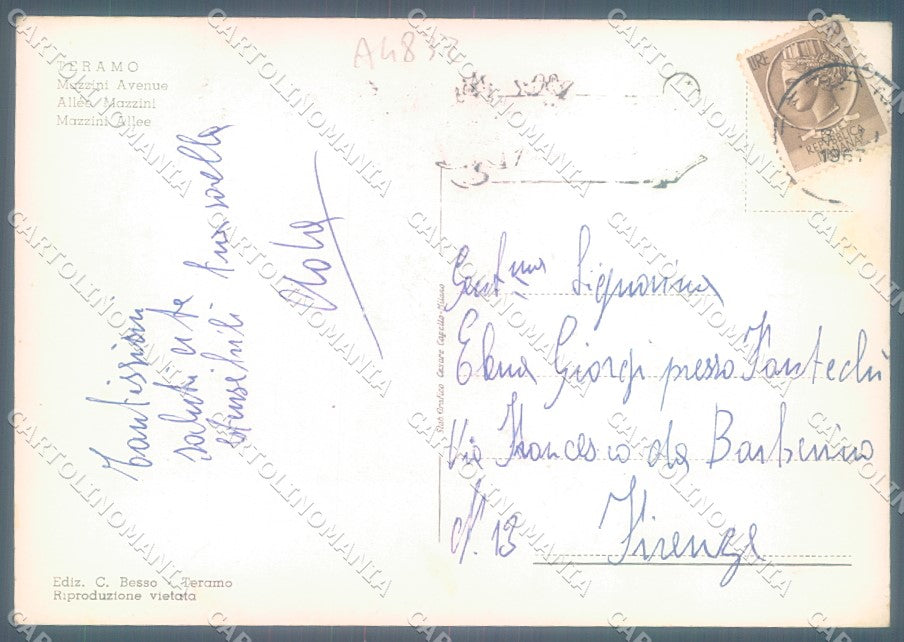 A4832
TERAMO
Mazzini Avenue
Allée Mazzini
Mazzini Allee
Tantissimi
saluti a te
tua sorella
Gent.ma Signorina
Elena Giorgi presso Fantechi
Via Francesco da Barberino
N. 13 Firenze
Ediz. C. Besso - Teramo
Riproduzione vietata
LIRE
REPUBBLICA
ITALIANA
CARTOLINOMANIA